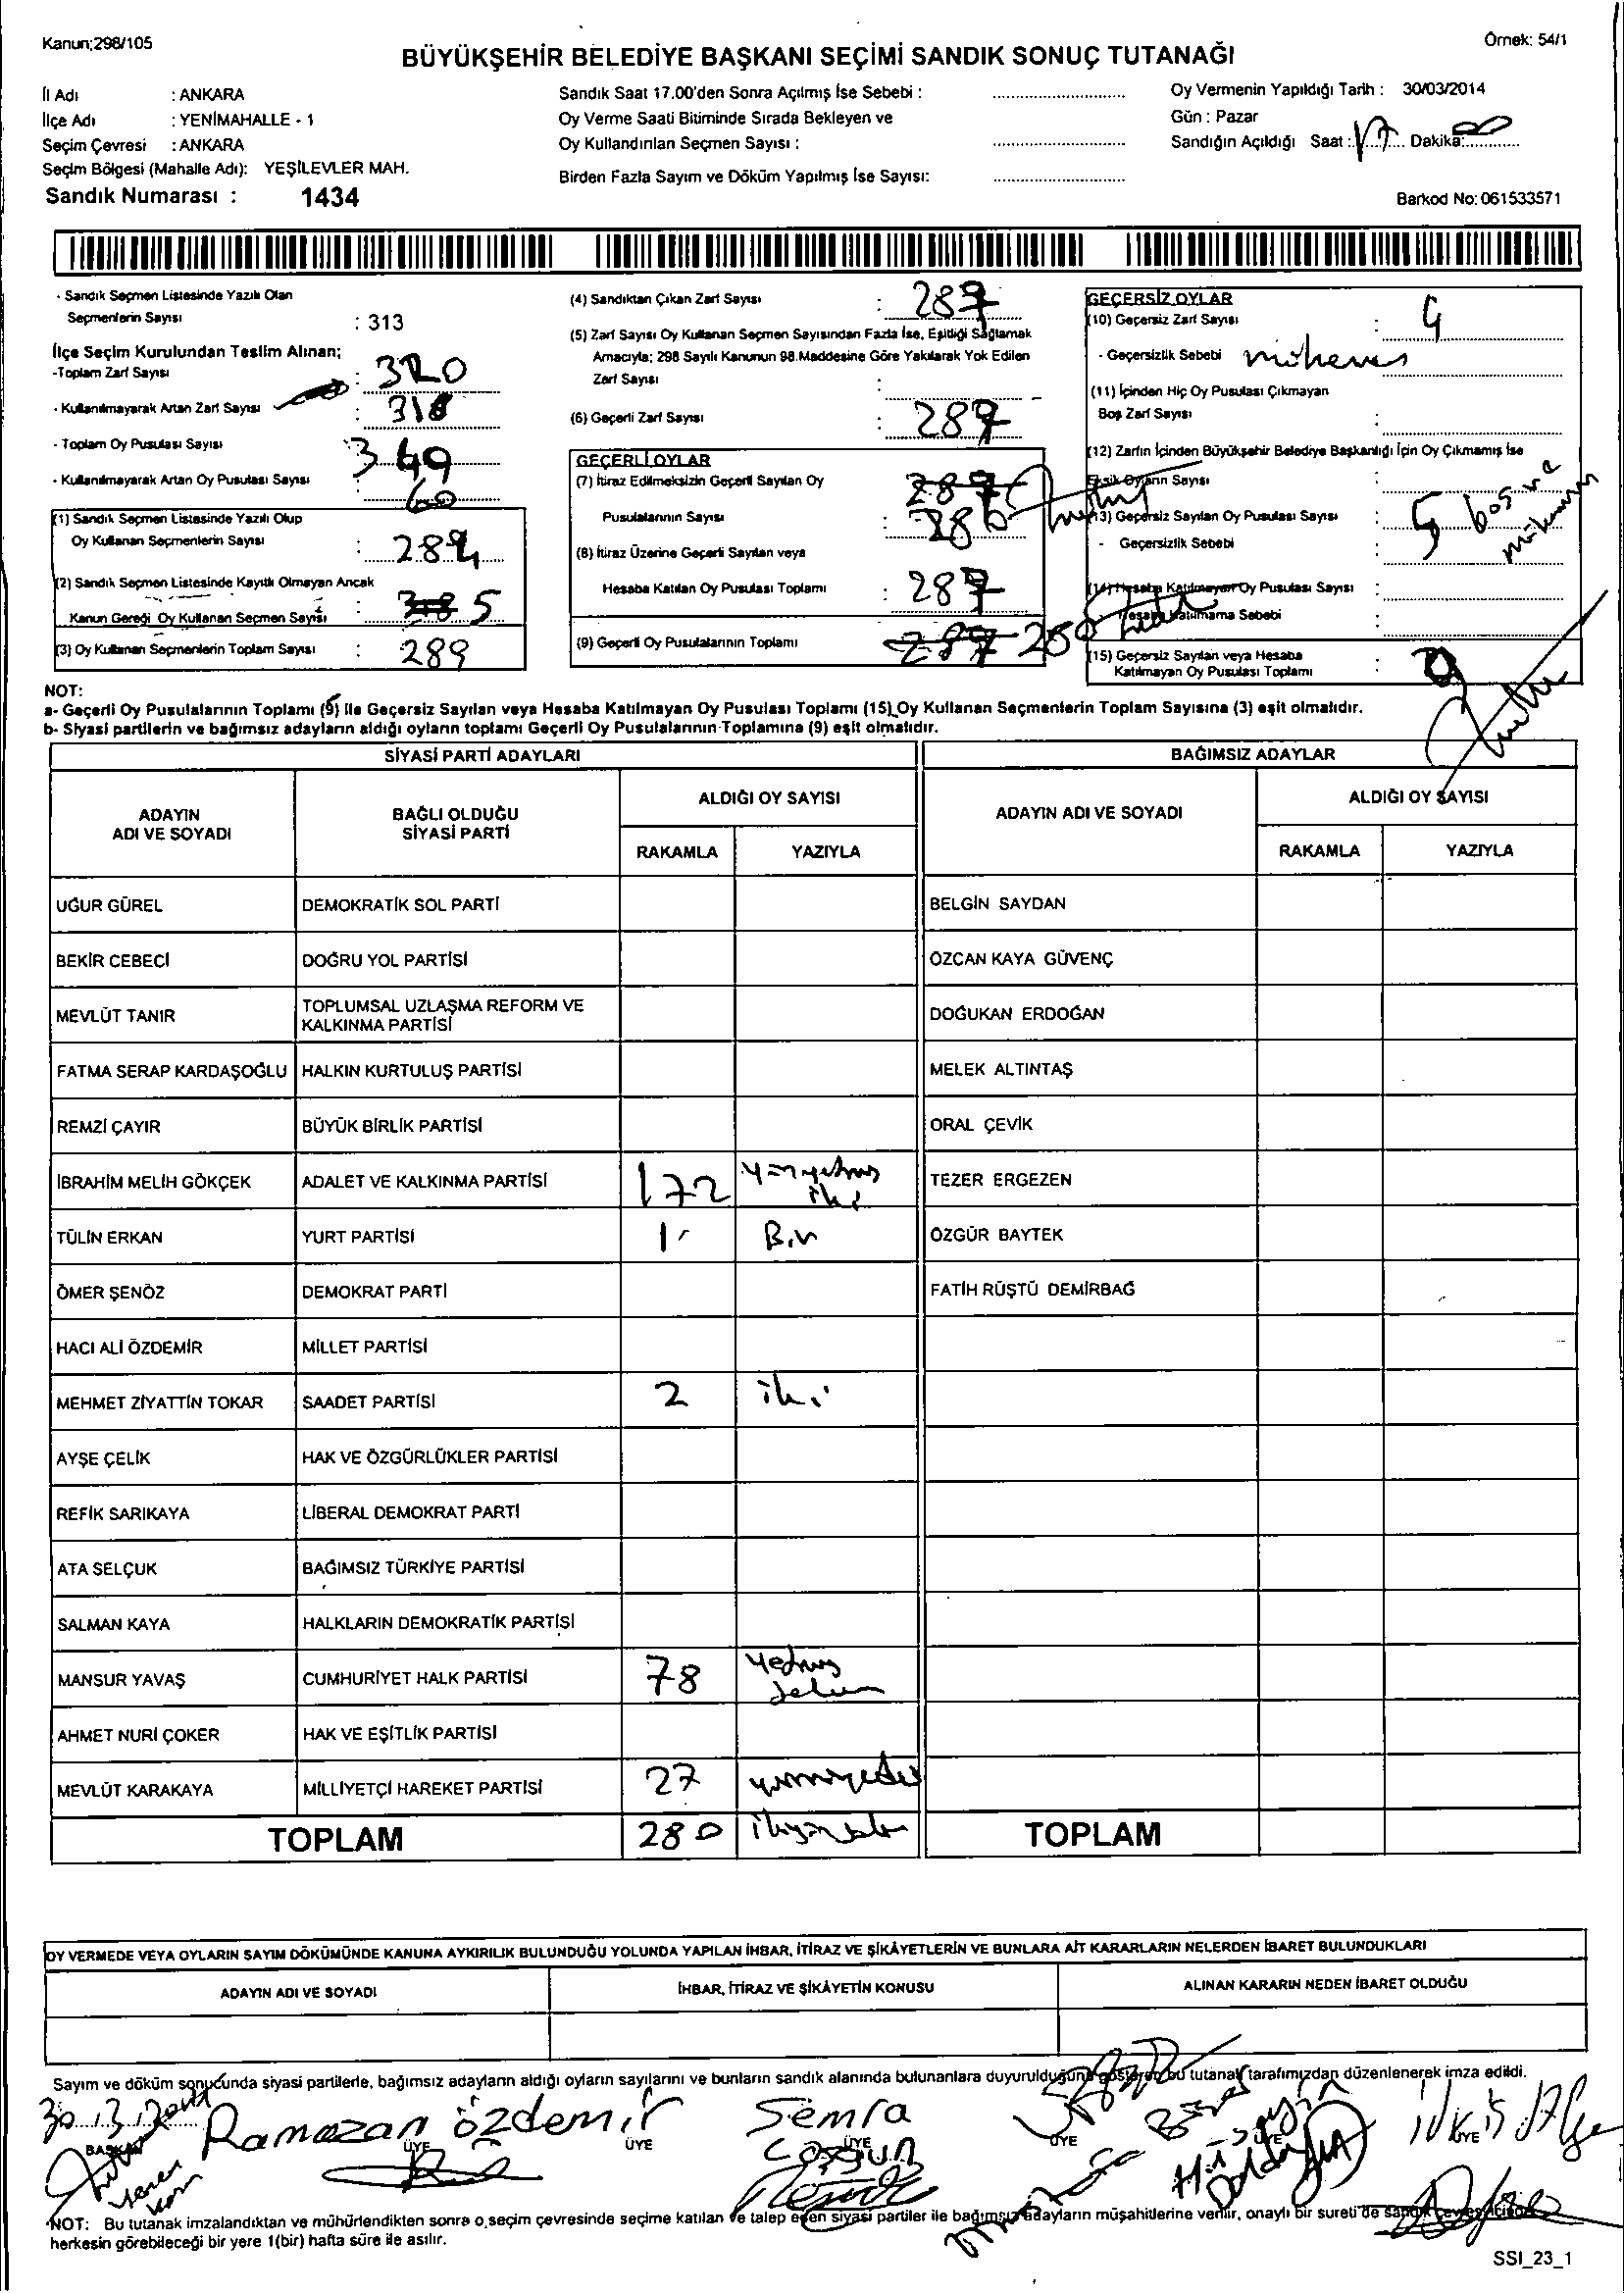 Kanun;298/105
Örnek: 54/1
BÜYÜKŞEHİR BELEDİYE BAŞKANI SEÇİMİ SANDIK SONUÇ TUTANAĞI
İl Adı : ANKARA
İlçe Adı : YENİMAHALLE - 1
Seçim Çevresi : ANKARA
Seçim Bölgesi (Mahalle Adı): YEŞİLEVLER MAH.
Sandık Numarası : 1434
Sandık Saat 17.00'den Sonra Açılmış İse Sebebi :
Oy Verme Saati Bitiminde Sırada Bekleyen ve
Oy Kullandırılan Seçmen Sayısı :
Birden Fazla Sayım ve Döküm Yapılmış İse Sayısı:
Oy Vermenin Yapıldığı Tarih : 30/03/2014
Gün : Pazar
Sandığın Açıldığı Saat : 17 Dakika:
Barkod No: 061533571
- Sandık Seçmen Listesinde Yazılı Olan
Seçmenlerin Sayısı : 313
İlçe Seçim Kurulundan Teslim Alınan;
-Toplam Zarf Sayısı : 320
- Kullanılmayarak Artan Zarf Sayısı :
- Toplam Oy Pusulası Sayısı : 349
- Kullanılmayarak Artan Oy Pusulası Sayısı : 60
(1) Sandık Seçmen Listesinde Yazılı Olup
Oy Kullanan Seçmenlerin Sayısı : 284
(2) Sandık Seçmen Listesinde Kayıtlı Olmayan Ancak
Kanun Gereği Oy Kullanan Seçmen Sayısı : 5
(3) Oy Kullanan Seçmenlerin Toplam Sayısı : 289
(4) Sandıktan Çıkan Zarf Sayısı : 287
(5) Zarf Sayısı Oy Kullanan Seçmen Sayısından Fazla İse, Eşitliği Sağlamak
Amacıyla; 298 Sayılı Kanunun 98.Maddesine Göre Yakılarak Yok Edilen
Zarf Sayısı :
(6) Geçerli Zarf Sayısı : 287
GEÇERLİ OYLAR
(7) İtiraz Edilmeksizin Geçerli Sayılan Oy 287
Pusulalarının Sayısı : 280
(8) İtiraz Üzerine Geçerli Sayılan veya
Hesaba Katılan Oy Pusulası Toplamı : 287
(9) Geçerli Oy Pusulalarının Toplamı 287 280
GEÇERSİZ OYLAR
(10) Geçersiz Zarf Sayısı : 4
- Geçersizlik Sebebi
(11) İçinden Hiç Oy Pusulası Çıkmayan
Boş Zarf Sayısı :
(12) Zarfın İçinden Büyükşehir Belediye Başkanlığı İçin Oy Çıkmamış İse
Eksik Oyların Sayısı :
(13) Geçersiz Sayılan Oy Pusulası Sayısı : 5 boş ve
- Geçersizlik Sebebi :
(14) Hesaba Katılmayan Oy Pusulası Sayısı :
Hesaba Katılmama Sebebi
(15) Geçersiz Sayılan veya Hesaba
Katılmayan Oy Pusulası Toplamı : 9
NOT:
a- Geçerli Oy Pusulalarının Toplamı (9) ile Geçersiz Sayılan veya Hesaba Katılmayan Oy Pusulası Toplamı (15) Oy Kullanan Seçmenlerin Toplam Sayısına (3) eşit olmalıdır.
b- Siyasi partilerin ve bağımsız adayların aldığı oyların toplamı Geçerli Oy Pusulalarının Toplamına (9) eşit olmalıdır.
SİYASİ PARTİ ADAYLARI
BAĞIMSIZ ADAYLAR
ADAYIN ADI VE SOYADI
BAĞLI OLDUĞU SİYASİ PARTİ
ALDIĞI OY SAYISI
RAKAMLA YAZIYLA
ADAYIN ADI VE SOYADI
ALDIĞI OY SAYISI
RAKAMLA YAZIYLA
UĞUR GÜREL DEMOKRATİK SOL PARTİ BELGİN SAYDAN
BEKİR CEBECİ DOĞRU YOL PARTİSİ ÖZCAN KAYA GÜVENÇ
MEVLÜT TANIR TOPLUMSAL UZLAŞMA REFORM VE KALKINMA PARTİSİ DOĞUKAN ERDOĞAN
FATMA SERAP KARDAŞOĞLU HALKIN KURTULUŞ PARTİSİ MELEK ALTINTAŞ
REMZİ ÇAYIR BÜYÜK BİRLİK PARTİSİ ORAL ÇEVİK
İBRAHİM MELİH GÖKÇEK ADALET VE KALKINMA PARTİSİ 172 yüzyetmiş iki TEZER ERGEZEN
TÜLİN ERKAN YURT PARTİSİ 1 Bir ÖZGÜR BAYTEK
ÖMER ŞENÖZ DEMOKRAT PARTİ FATİH RÜŞTÜ DEMİRBAĞ
HACI ALİ ÖZDEMİR MİLLET PARTİSİ
MEHMET ZİYATTİN TOKAR SAADET PARTİSİ 2 iki
AYŞE ÇELİK HAK VE ÖZGÜRLÜKLER PARTİSİ
REFİK SARIKAYA LİBERAL DEMOKRAT PARTİ
ATA SELÇUK BAĞIMSIZ TÜRKİYE PARTİSİ
SALMAN KAYA HALKLARIN DEMOKRATİK PARTİSİ
MANSUR YAVAŞ CUMHURİYET HALK PARTİSİ 78 yetmiş sekiz
AHMET NURİ ÇOKER HAK VE EŞİTLİK PARTİSİ
MEVLÜT KARAKAYA MİLLİYETÇİ HAREKET PARTİSİ 27 yirmiyedi
TOPLAM 280 ikiyüzseksen TOPLAM
OY VERMEDE VEYA OYLARIN SAYIM DÖKÜMÜNDE KANUNA AYKIRILIK BULUNDUĞU YOLUNDA YAPILAN İHBAR, İTİRAZ VE ŞİKÂYETLERİN VE BUNLARA AİT KARARLARIN NELERDEN İBARET BULUNDUKLARI
ADAYIN ADI VE SOYADI İHBAR, İTİRAZ VE ŞİKÂYETİN KONUSU ALINAN KARARIN NEDEN İBARET OLDUĞU
Sayım ve döküm sonucunda siyasi partilerle, bağımsız adayların aldığı oyların sayılarını ve bunların sandık alanında bulunanlara duyurulduğunu gösteren bu tutanak tarafımızdan düzenlenerek imza edildi.
30.13.2014
Ramazan özdemir Semra Coşgun
BAŞKAN ÜYE ÜYE ÜYE ÜYE ÜYE ÜYE
NOT: Bu tutanak imzalandıktan ve mühürlendikten sonra o seçim çevresinde seçime katılan ve talep eden siyasi partiler ile bağımsız adayların müşahitlerine verilir, onaylı bir sureti de sandık çevresinde
herkesin görebileceği bir yere 1(bir) hafta süre ile asılır.
SSI_23_1